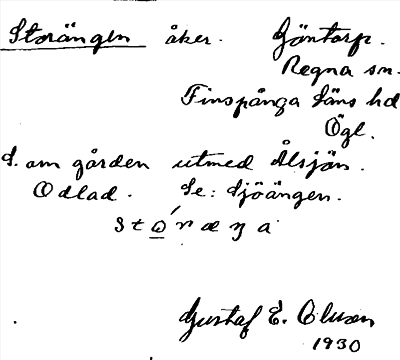 Storängen åker. Göntorp.
Regna sn.
Finspånga läns hd
Ögl.
S. om gården utmed Ålsjön.
Odlad. Se: Sjöängen.
stώ̲ræŋa
Gustaf E. Olsson
1930